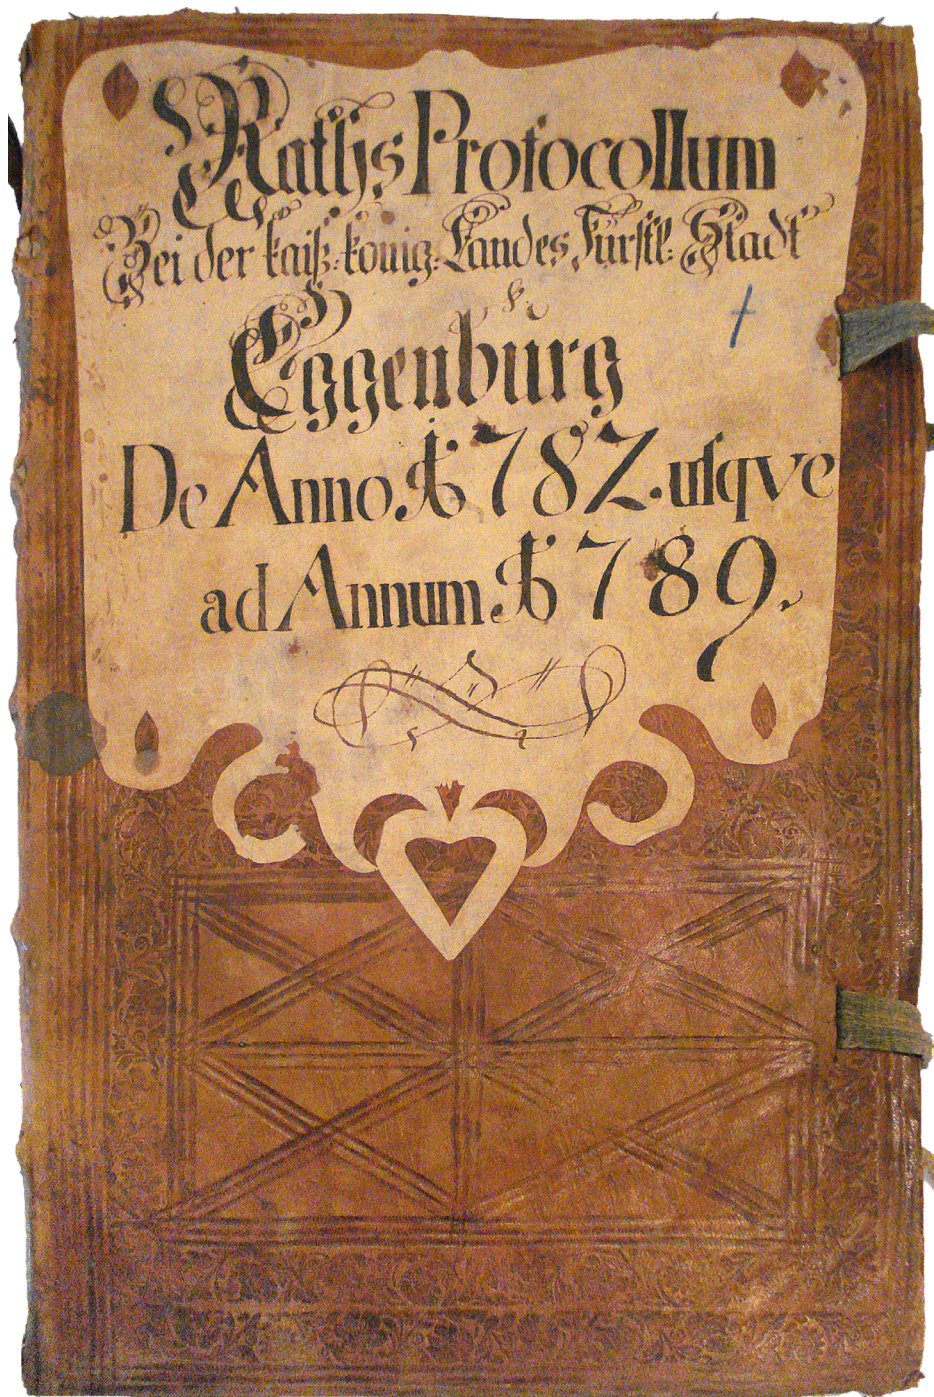 Raths Protocollum
Bei der kaiß: könig: Landes Fürstl: Stadt
Eggenburg
De Anno 1782. usqve
ad Annum 1789.